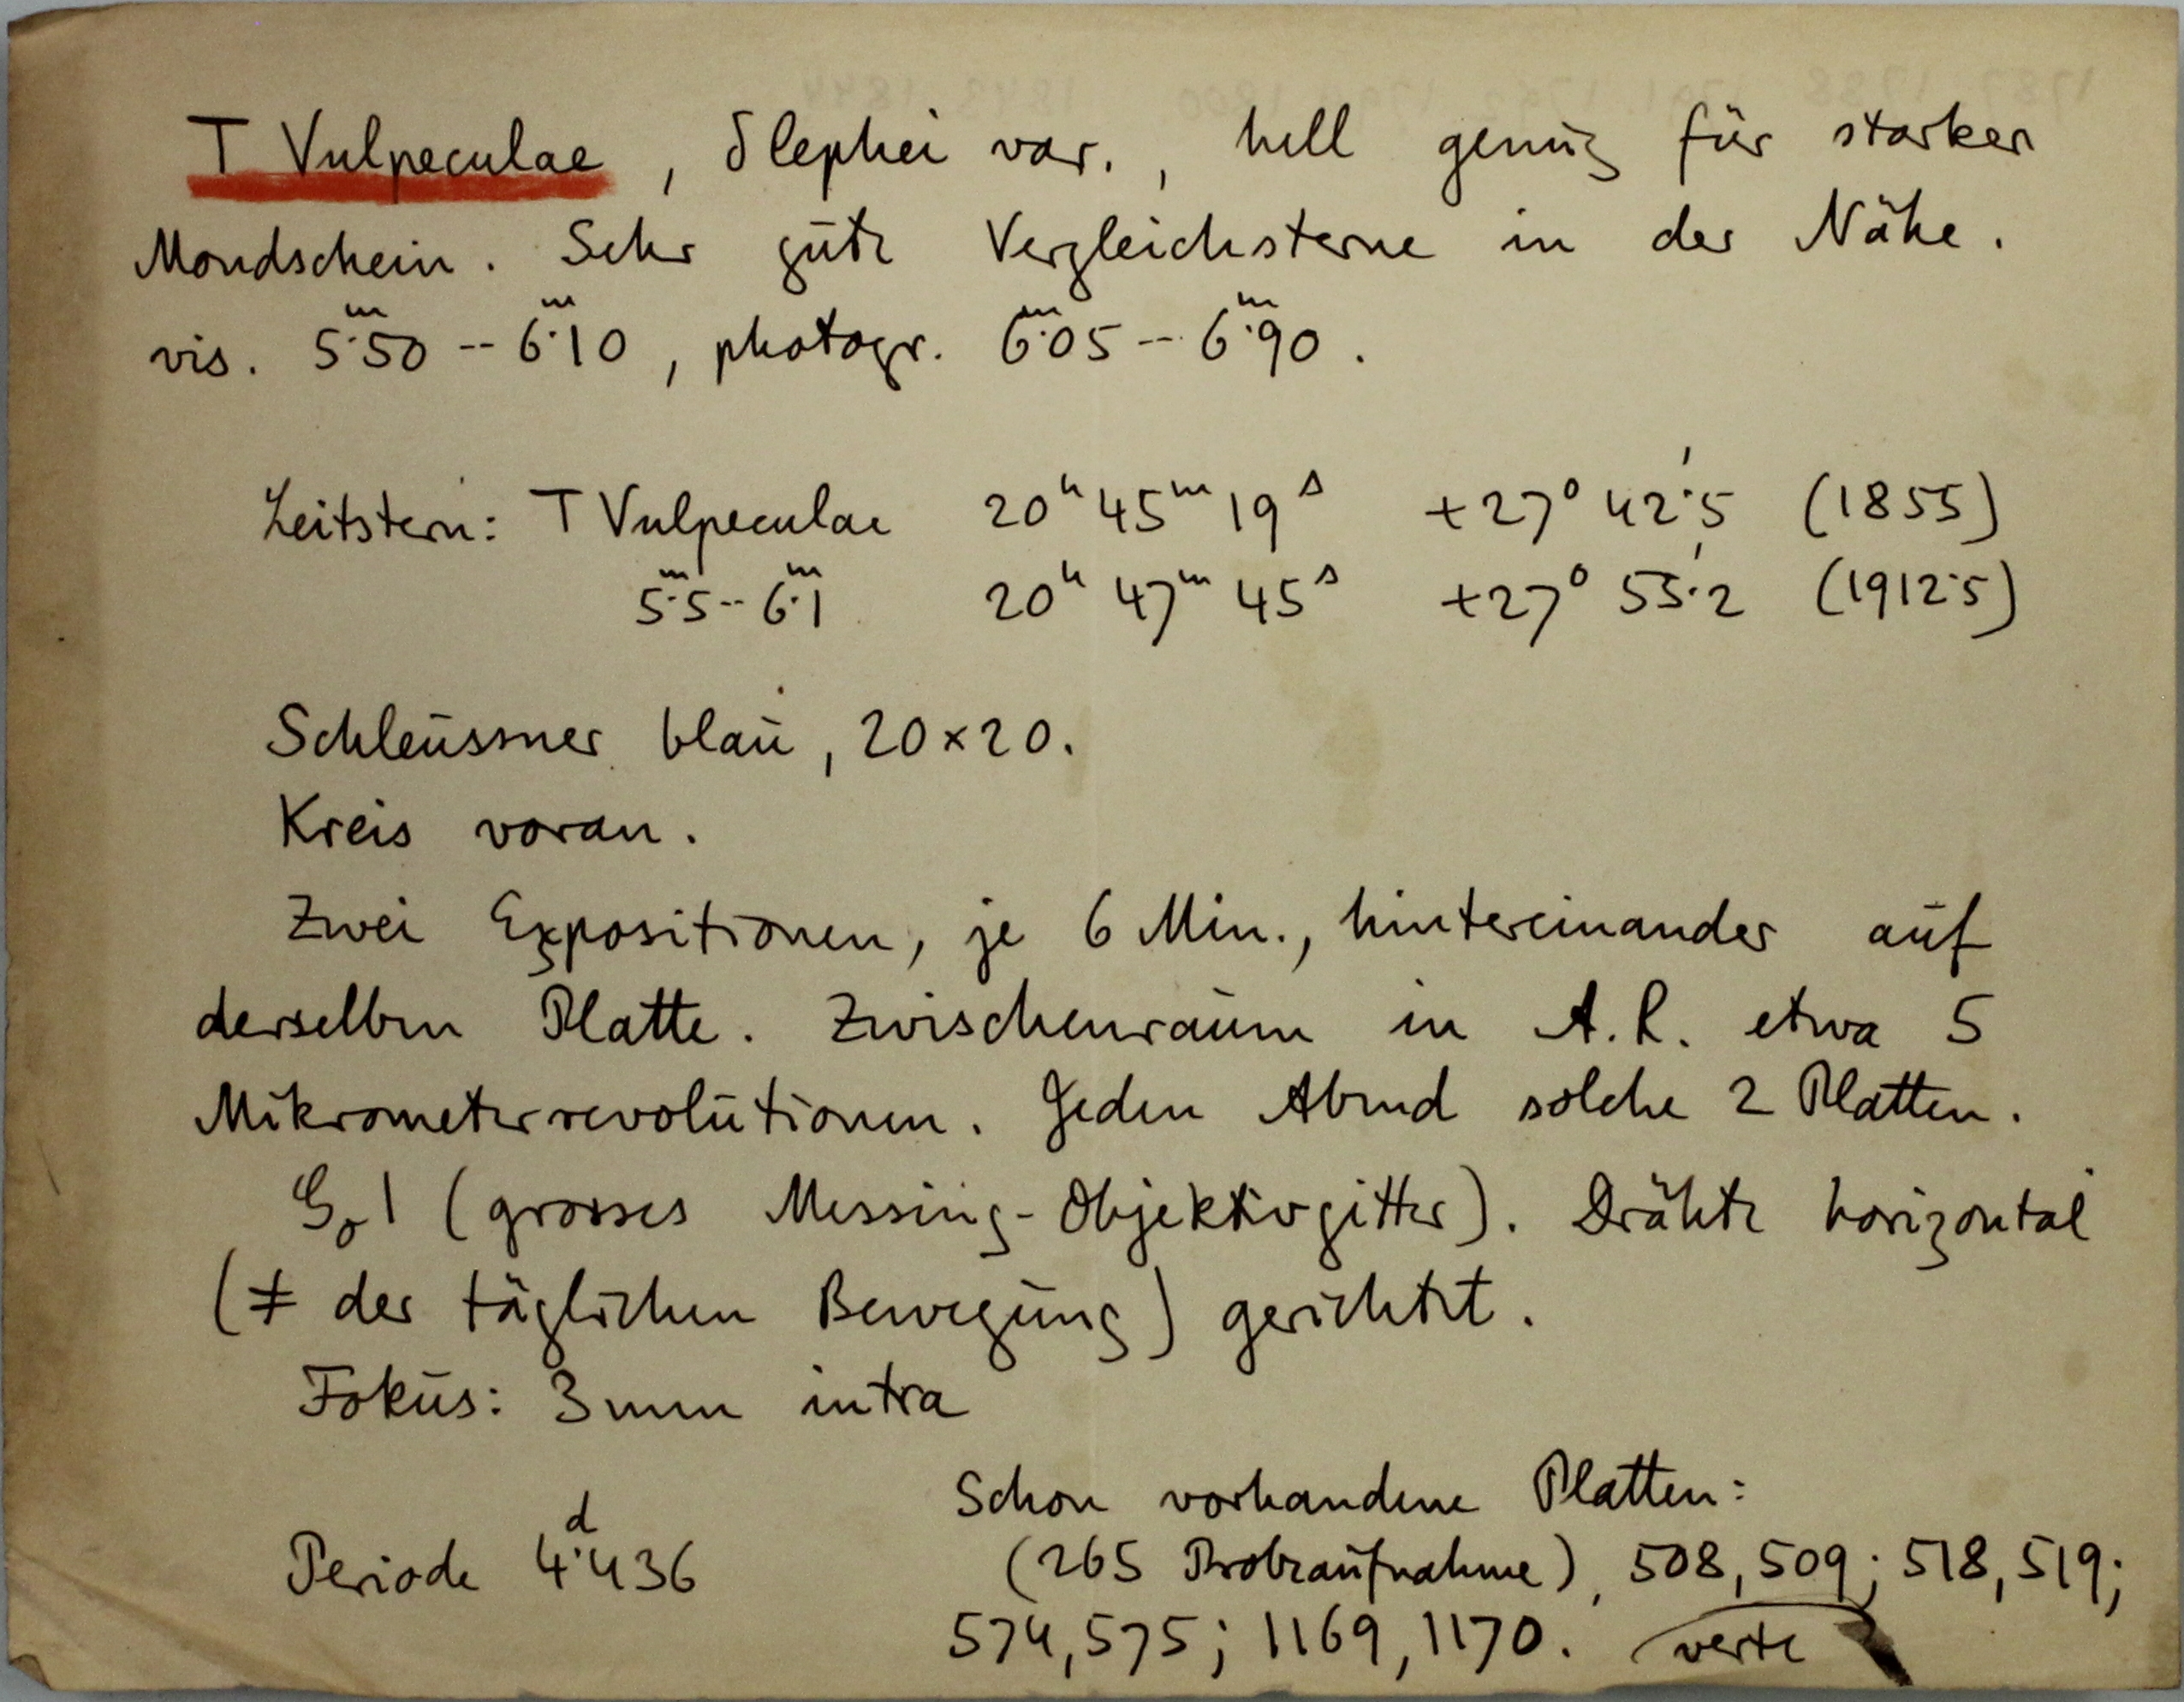 T Vulpeculae, δ Cephei var., hell genug für starken
Mondschein. Sehr gute Vergleichsterne in der Nähe.
vis. 5ᵐ.50 -- 6ᵐ.10, photogr. 6ᵐ.05 -- 6ᵐ.90.
Leitstern: T Vulpeculae 20ʰ 45ᵐ 19ˢ +27° 42'.5 (1855)
5ᵐ.5 -- 6ᵐ.1 20ʰ 47ᵐ 45ˢ +27° 55'.2 (1912.5)
Schleussner blau, 20×20.
Kreis voran.
Zwei Expositionen, je 6 Min., hintereinander auf
derselben Platte. Zwischenraum in A.R. etwa 5
Mikrometerrevolutionen. Jeden Abend solche 2 Platten.
G₀1 (grosses Messing-Objektivgitter). Drähte horizontal
(≠ der täglichen Bewegung) gerichtet.
Fokus: 3mm intra
Periode 4ᵈ.436
Schon vorhandene Platten:
(265 Probeaufnahme), 508, 509; 518, 519;
574, 575; 1169, 1170. verte